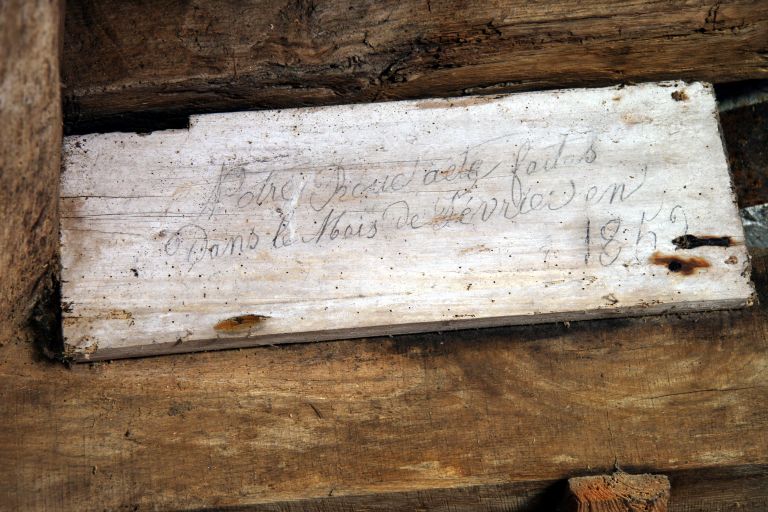 Notre Roue a été faites
Dans le Mois de Février en
1852